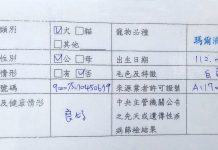 類別 ☑犬 □貓 寵物品種 瑪爾
□其他
性別 ☑公 □母 出生日期 112.
情形 □有 ☑否 毛色及特徵 白
號碼 來源業者許可證號
及健康情形 良好 中央主管機關公布
之先天或遺傳性疾
病篩檢結果